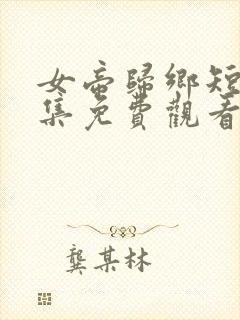 女帝歸鄉短
集免費觀看
龔某林